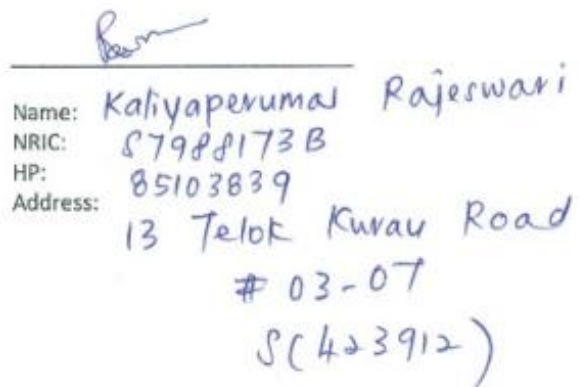 Name: Kaliyaperumal Rajeswari
NRIC: S7988173B
HP: 85103839
Address: 13 Telok Kurau Road
# 03-07
S(423912)